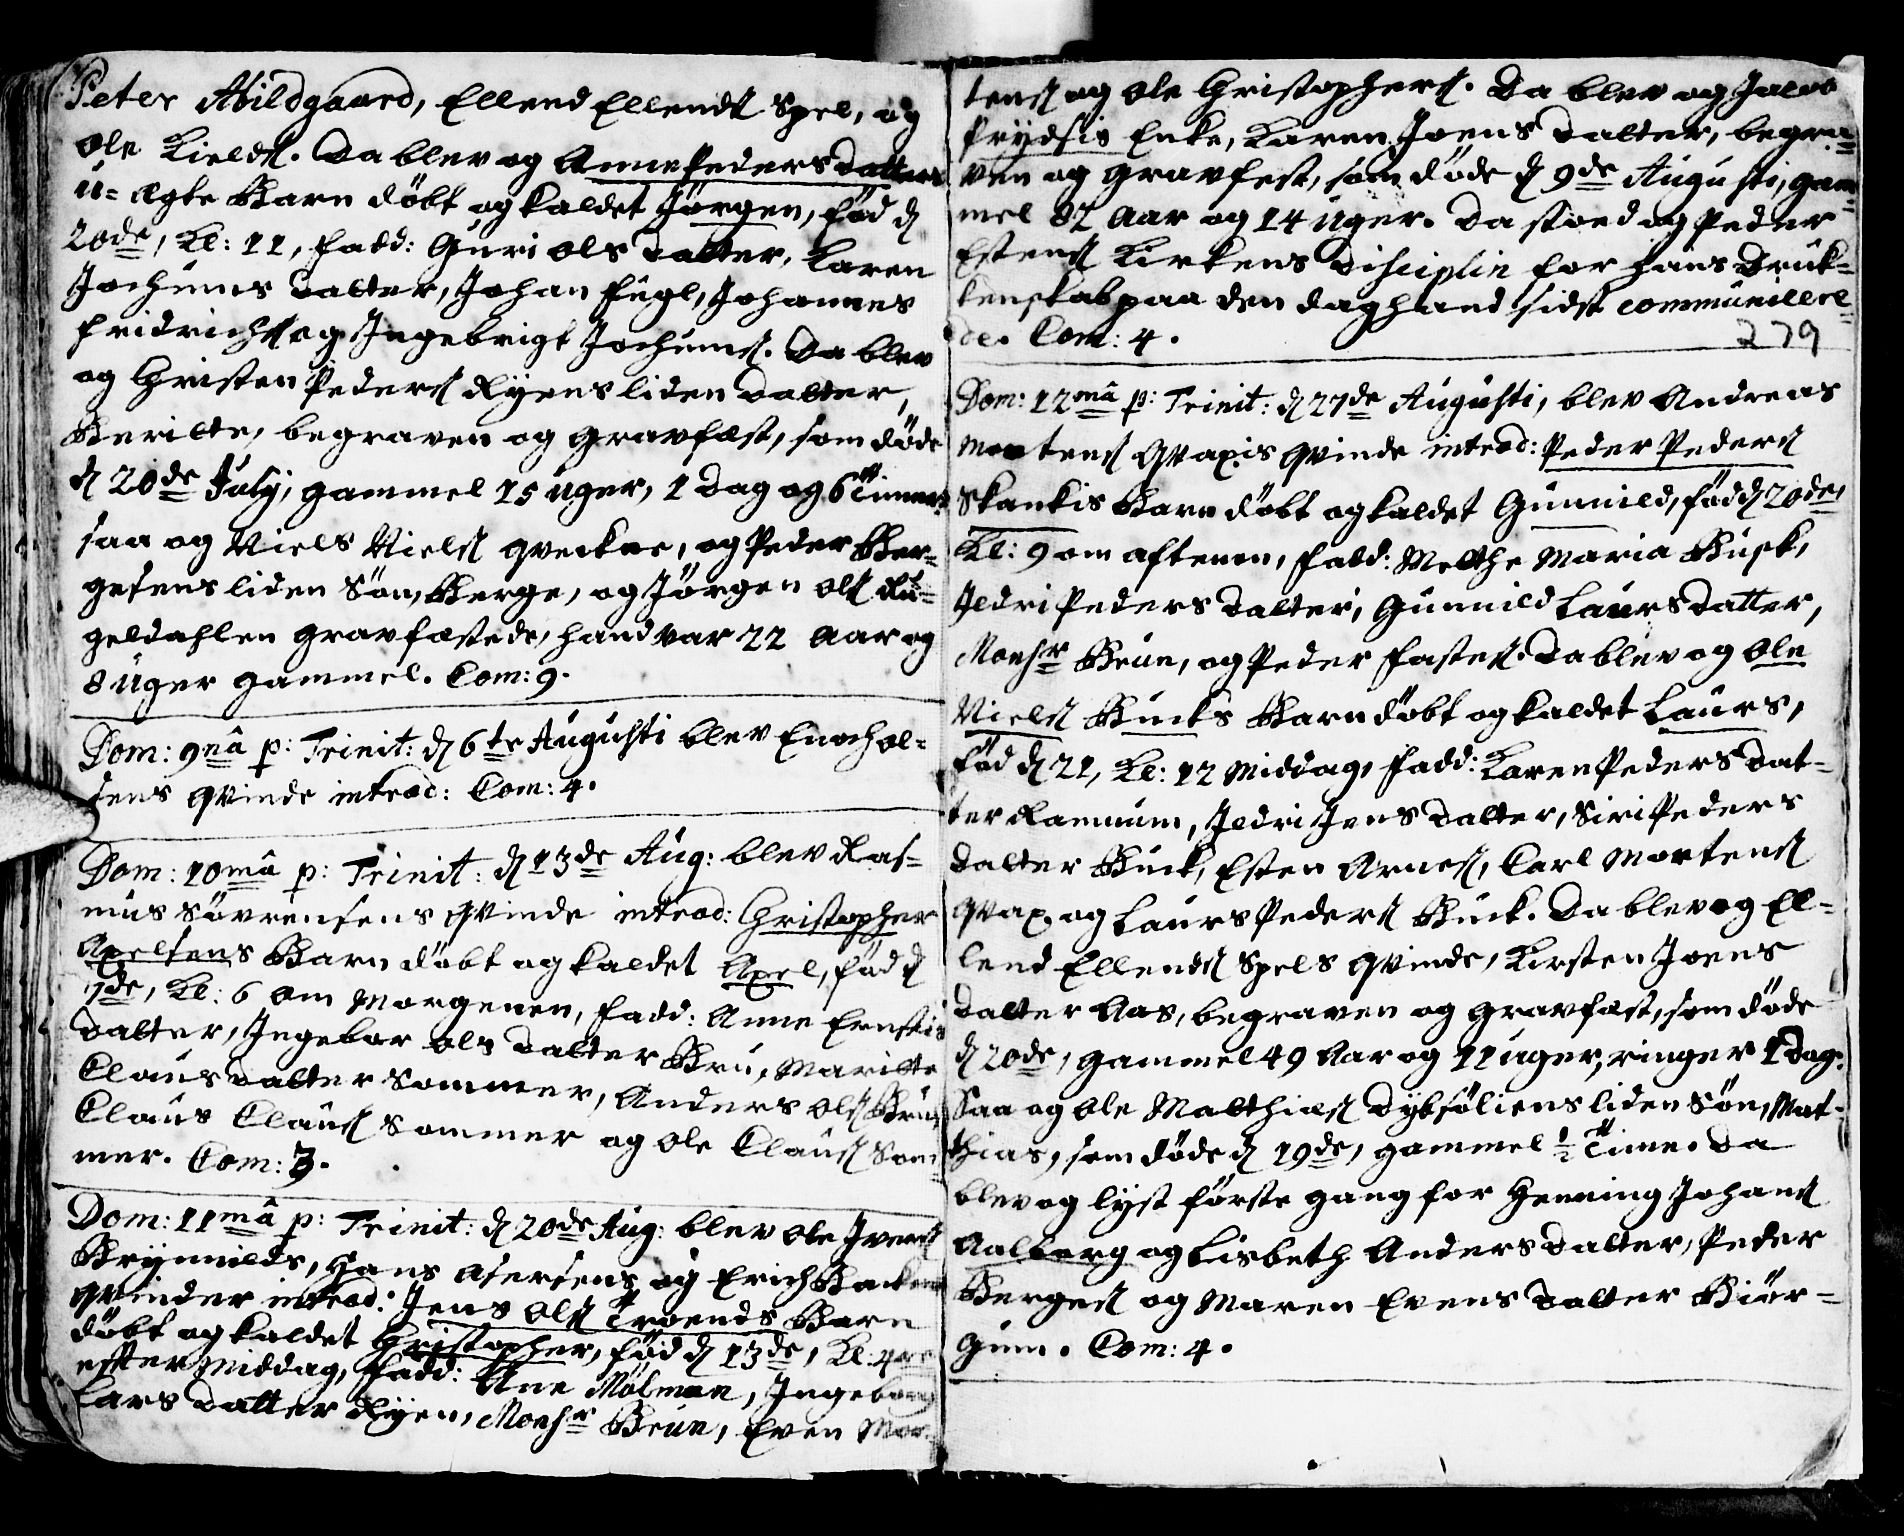 Peter Abildgaard, Ellend Ellends. Spel, og
Ole Kields. Da blev og Anne Pedersdatters
u=ægte Barn döbt og kaldet Jörgen, föd d
20de, Kl: 11, fadd: Guri Ols datter, Karen
Jochums datter, Johan Fugl, Johannes
Fridrichs. og Ingebrigt Jochums. Da blev
og Christen Peders. Ryens liden datter,
Beritte, begraven og gravfæst, som döde
d 20de July, gammel 15 uger, 1 dag og 6 Timer
saa og Niels Niels. Qvekne, og Peder Ber=
gesens liden Sön, Berge, og Jörgen Ols. Ru=
geldahlen gravfæstede, hand var 22 Aar og
8 uger gammel. Com: 9.
Dom: 9nâ p: Trinit: d 6te Augusti blev Enoch Ol=
sens Qvinde introd: Com: 4.
Dom: 10mâ p: Trinit: d 13de Aug: blev Ras=
mus Sövrensens Qvinde introd: Christopher
Axelsens Barn döbt og kaldet Axel, föd d
7de, Kl: 6 om Morgenen, fadd: Anne Ernstis
datter, Ingebor Ols datter Bru, Maritte
Claus datter Sommer, Anders Ols. Bru,
Claus Claus. Sommer og Ole Claus. Som=
mer. Com: 3.
Dom: 11mâ p: Trinit: d 20de Aug: blev Ole Ivers.
Brynnilds, Hans Asersens og Erich
Qvinder introd: Jens Ols. Troends Barn
döbt og kaldet Christopher, föd d 13de, Kl: 4re
efter Middag, fadd: Ane Mölman, Ingeborg
Lars datter Ryen, Monsr Brun, Even Mor=
tens. og Ole Christophers. Da blev og Jacob
Prydsis Enke, Karen Joens datter, begra=
ven og gravfest, som döde d 9de Augusti, gam=
mel 82 Aar og 14 uger. Da stoed og Peder
Estens. Kirkens Disciplin for hans Druk=
kenskab paa den dag hand sidst communicere=
de. Com: 4.
279
Dom: 12mâ p: Trinit: d 27de Augusti, blev Andreas
Mortens. Qvaxis Qvinde introd: Peder Peders.
Skankis Barn döbt og kaldet Gunnild, föd d 20de,
Kl: 9 om aftenen, fadd: Melthe Maria Busk,
Ildri Peders datter, Gunnild Laurs datter,
Monsr Brun, og Peder Fastes. Da blev og Ole
Niels. Bucks Barn döbt og kaldet Laurs,
föd d 21, Kl: 12 Middag, fadd: Karen Peders dat=
ter Ramnum, Ildri Jens datter, Siri Peders
datter Buck, Esten Arnes., Carl Mortens.
Qvax. og Laurs Peders. Buck. Da blev og El=
lend Ellends. Spels Qvinde, Kirsten Joens
datter Aas, begraven og gravfæst, som döde
d 20de, gammel 49 Aar og 11 uger, ringer 1 dag.
Saa og Ole Matthias. Dybsöliens liden Sön, Mat=
thias, som döde d 19de, gammel ½ Time. Da
blev og lyst förste gang for Henning Johans.
Aalborg og Lisbeth Anders datter, Peder
Berges. og Maren Evens datter Biör=
gum. Com: 4.